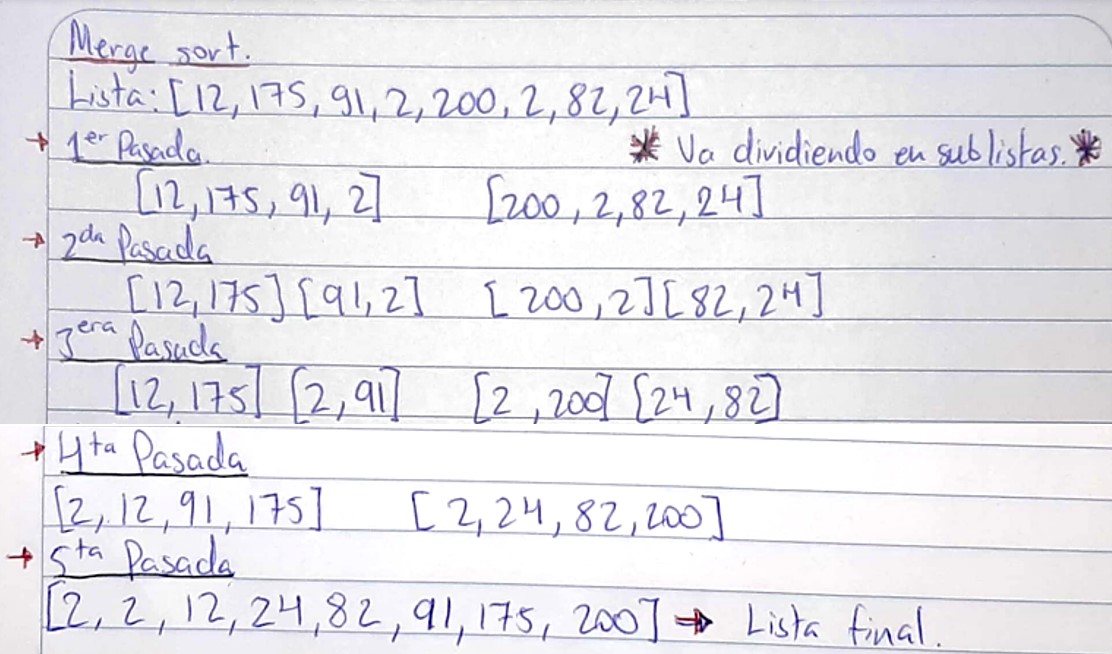 Merge sort.
Lista: [12, 175, 91, 2, 200, 2, 82, 24]
→ 1er Pasada. * Va dividiendo en sublistas. *
[12, 175, 91, 2] [200, 2, 82, 24]
→ 2da Pasada
[12, 175] [91, 2] [200, 2] [82, 24]
→ 3era Pasada
[12, 175] [2, 91] [2, 200] [24, 82]
→ 4ta Pasada
[2, 12, 91, 175] [2, 24, 82, 200]
→ 5ta Pasada
[2, 2, 12, 24, 82, 91, 175, 200] → Lista final.